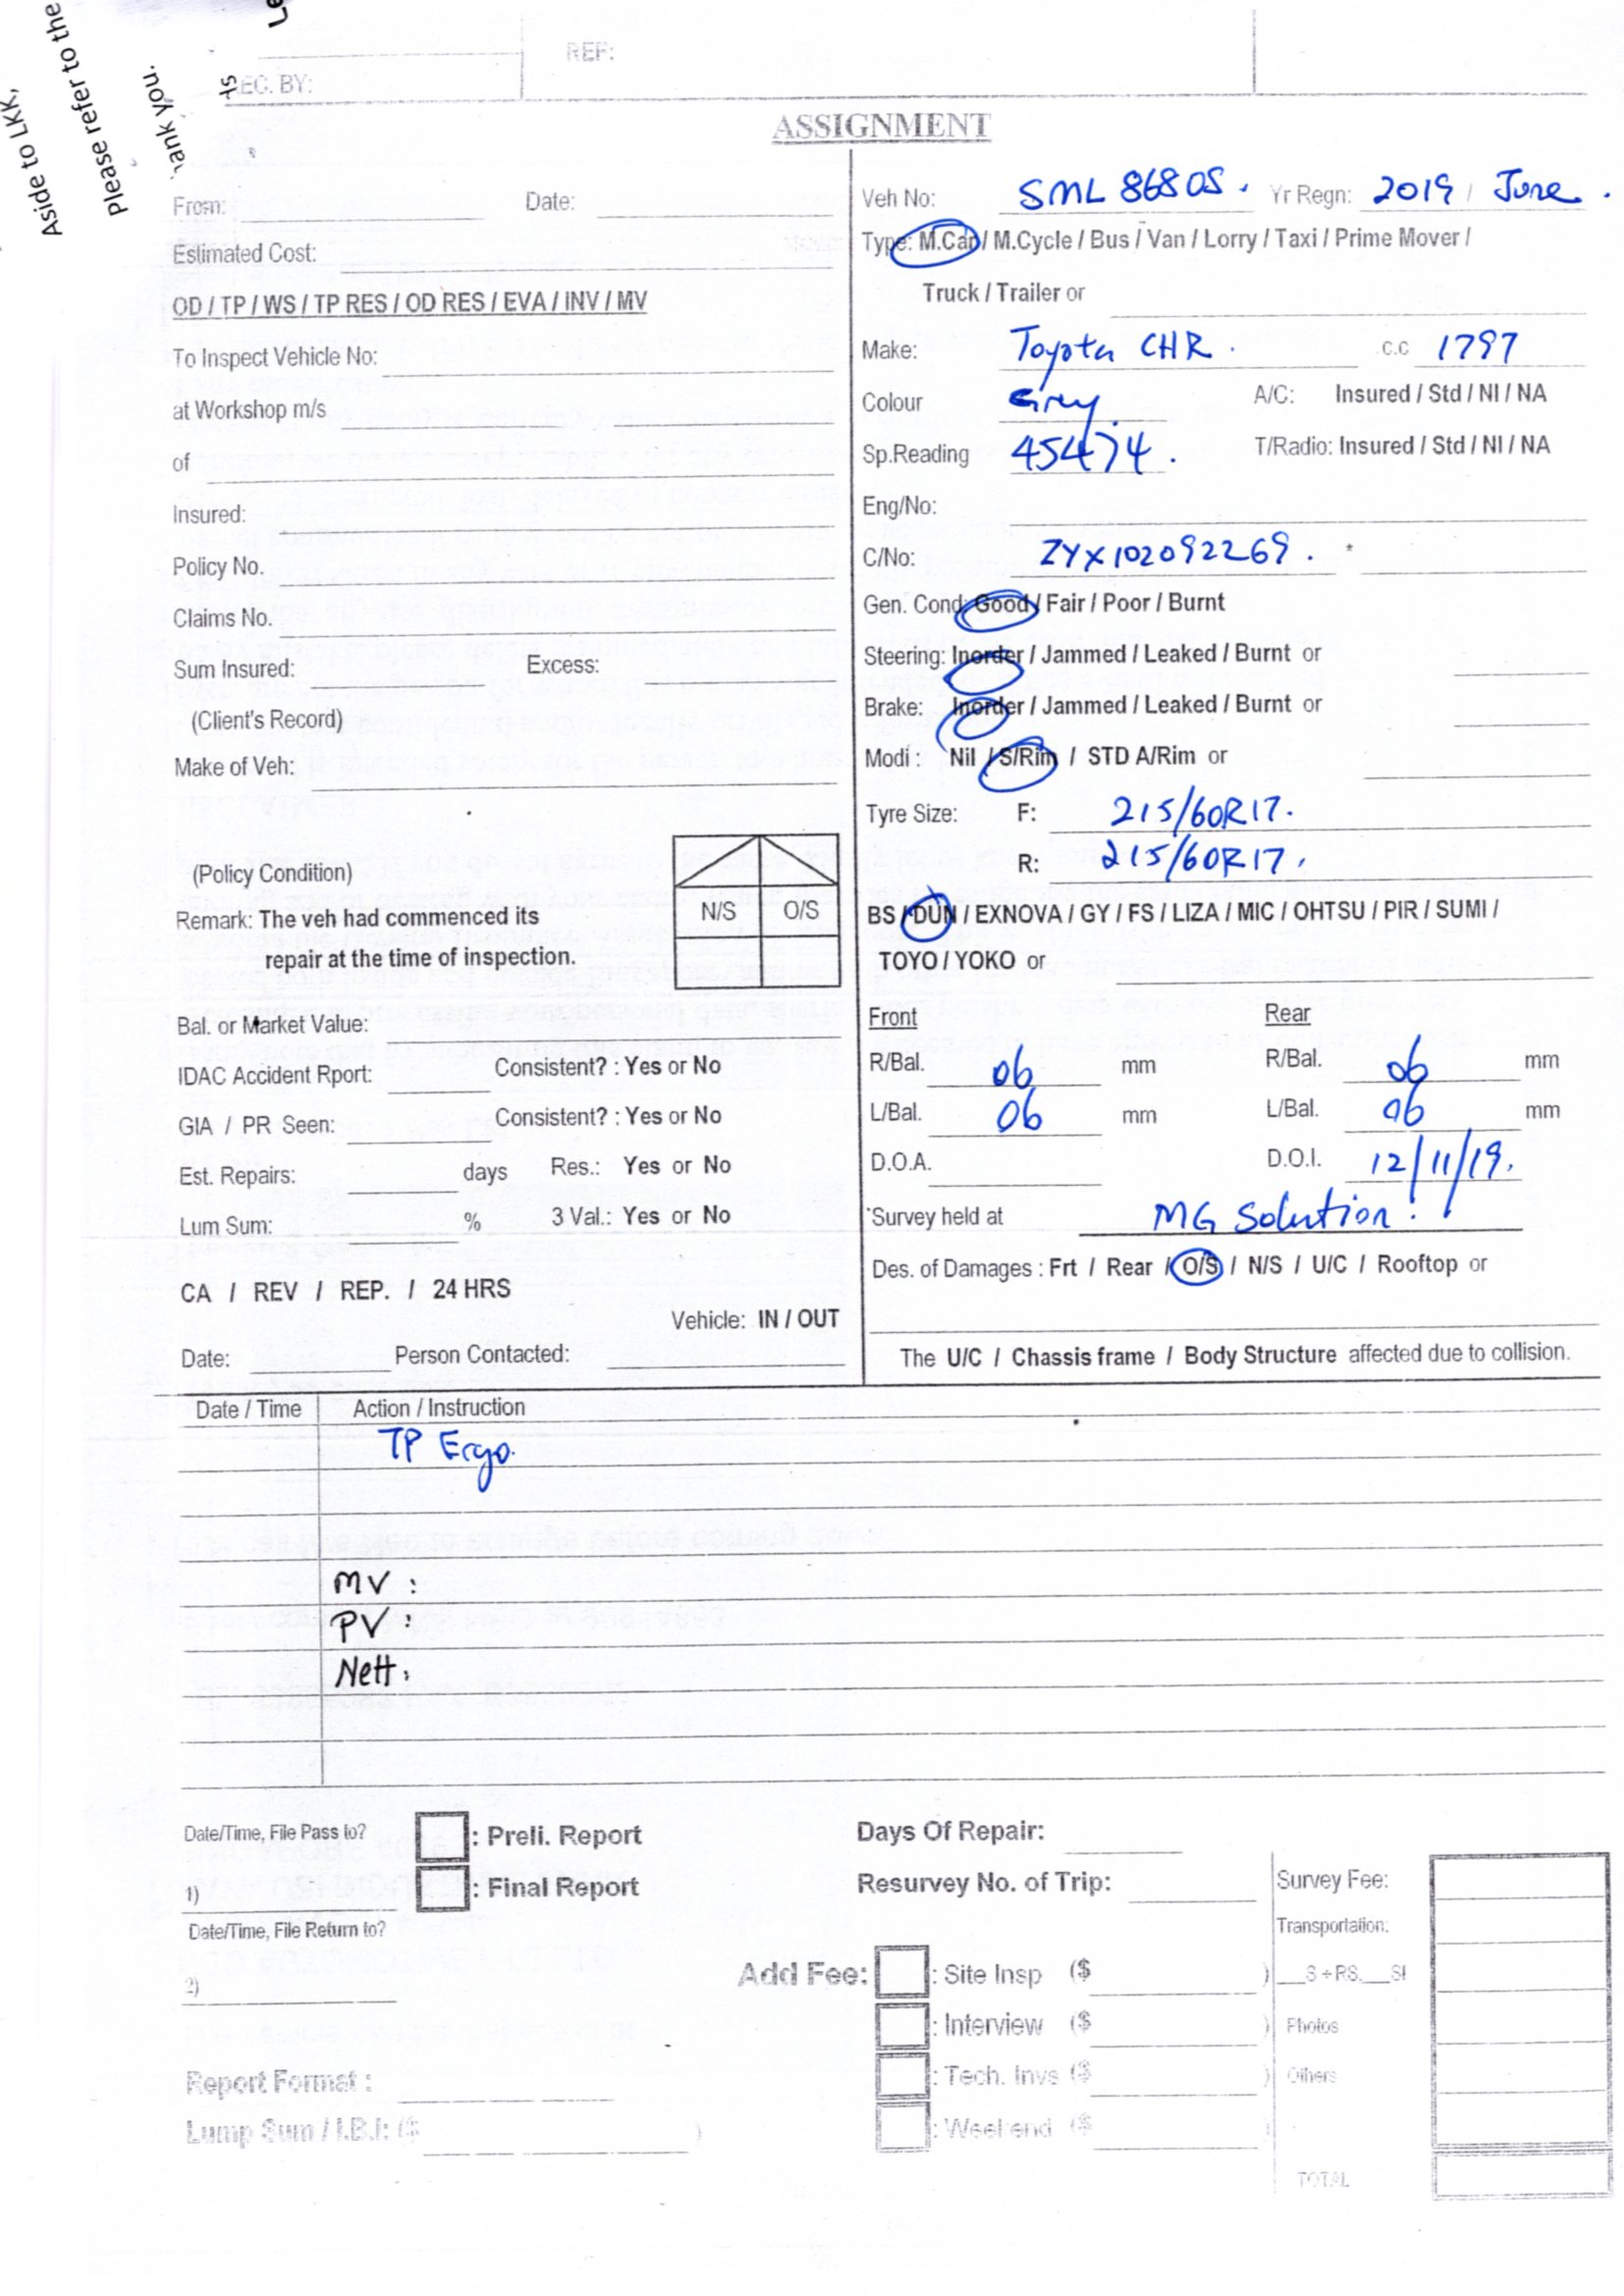 Aside to LKK,
Please refer to the
ank you.
Le
ts
REF:
EC. BY:
ASSIGNMENT
From: Date:
Estimated Cost:
OD / TP / WS / TP RES / OD RES / EVA / INV / MV
To Inspect Vehicle No:
at Workshop m/s
of
Insured:
Policy No.
Claims No.
Sum Insured: Excess:
(Client's Record)
Make of Veh:
(Policy Condition)
N/S O/S
Remark: The veh had commenced its
repair at the time of inspection.
Bal. or Market Value:
IDAC Accident Rport: Consistent? : Yes or No
GIA / PR Seen: Consistent? : Yes or No
Est. Repairs: days Res.: Yes or No
Lum Sum: % 3 Val.: Yes or No
CA / REV / REP. / 24 HRS
Vehicle: IN / OUT
Date: Person Contacted:
Veh No: SML 8680S. Yr Regn: 2019 / June.
Type: M.Car / M.Cycle / Bus / Van / Lorry / Taxi / Prime Mover /
Truck / Trailer or
Make: Toyota CHR. c.c 1797
Colour Grey. A/C: Insured / Std / NI / NA
Sp.Reading 45474. T/Radio: Insured / Std / NI / NA
Eng/No:
C/No: ZYX102092269. *
Gen. Cond: Good / Fair / Poor / Burnt
Steering: Inorder / Jammed / Leaked / Burnt or
Brake: Inorder / Jammed / Leaked / Burnt or
Modi : Nil / S/Rim / STD A/Rim or
Tyre Size: F: 215/60R17.
R: 215/60R17.
BS / DUN / EXNOVA / GY / FS / LIZA / MIC / OHTSU / PIR / SUMI /
TOYO / YOKO or
Front Rear
R/Bal. 06 mm R/Bal. 06 mm
L/Bal. 06 mm L/Bal. 06 mm
D.O.A. D.O.I. 12/11/19.
Survey held at MG Solution.
Des. of Damages : Frt / Rear / O/S / N/S / U/C / Rooftop or
The U/C / Chassis frame / Body Structure affected due to collision.
Date / Time Action / Instruction
TP Ergo.
MV :
PV :
Nett :
Date/Time, File Pass to? : Preli. Report
1) : Final Report
Date/Time, File Return to?
2)
Report Format :
Lump Sum / I.B.I: ($ )
Days Of Repair:
Resurvey No. of Trip:
Add Fee: : Site Insp ($ )
: Interview ($ )
: Tech. Invs ($ )
: Weekend ($ )
Survey Fee:
Transportation:
S + RS. SI
Photos
Others
TOTAL